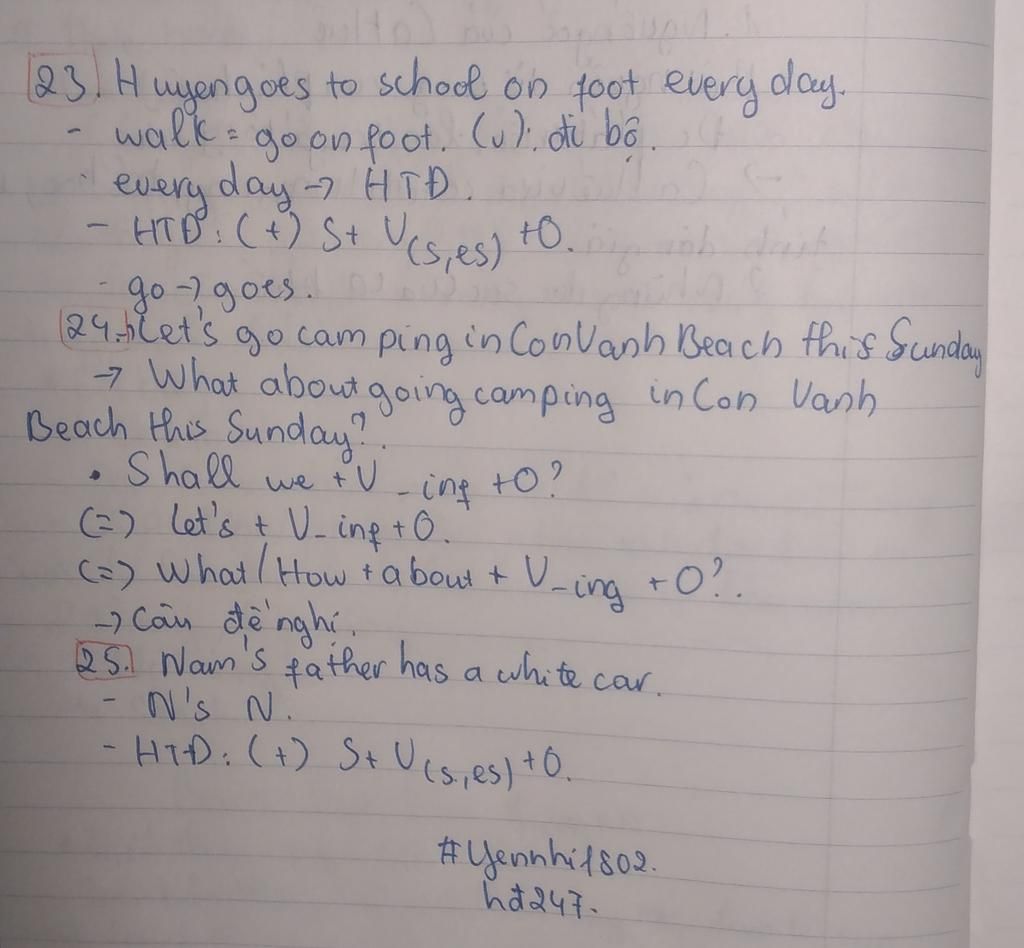 23. Huyen goes to school on foot every day.
- walk = go on foot. (v): đi bộ.
- every day → HTĐ.
- HTĐ: (+) S+ V(s,es) +O.
- go → goes.
24. Let's go camping in Con Vanh Beach this Sunday
→ What about going camping in Con Vanh
Beach this Sunday?.
• Shall we + V_inf +O?
(=) Let's + V_inf + O.
(=) What / How + about + V_ing + O?.
→ Câu đề nghị.
25. Nam's father has a white car.
- N's N.
- HTĐ: (+) S+ V(s,es) +O.
#Yennhi1802.
hd247.